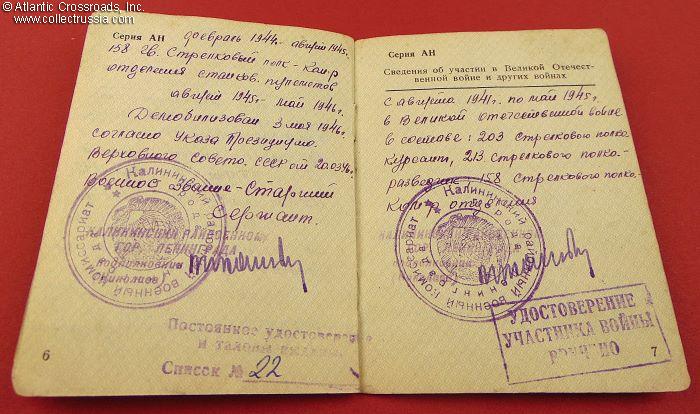 © Atlantic Crossroads, Inc.
www.collectrussia.com
Серия АН
февраль 1944г. август 1945г.
158 гв. Стрелковый полк - Ком-р
отделения станков. пулеметов
август 1945г. - май 1946г.
Демобилизован 3 мая 1946г.
согласно Указа Президиума
Верховного Совета СССР от 20.03.46г.
Воинское звание - Старший
Сержант.
Калининский
Военный Комиссариат
КАЛИНИНСКИЙ РАЙВОЕНКОМ
ГОР. ЛЕНИНГРАДА
подполковник
Николаев
Постоянное удостоверение
и талоны выданы
Список № 22
6
Серия АН
Сведения об участии в Великой Отечест-
венной войне и других войнах
с августа 1941г. по май 1945г.
в Великой отечественной войне
в составе: 203 Стрелкового полка
курсант, 213 Стрелкового полка -
разведчик 158 Стрелкового полка -
отделения
Калининский районный
Военный Комиссариат
УДОСТОВЕРЕНИЕ
УЧАСТНИКА ВОЙНЫ
ВРУЧЕНО
7